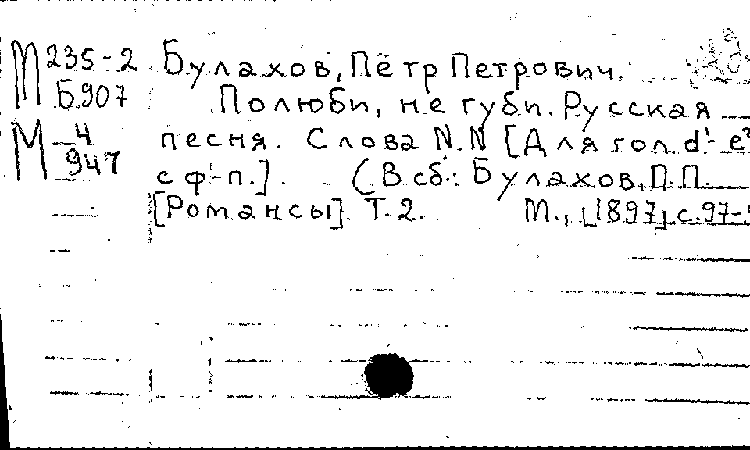 М 235-2 Булахов, Пётр Петрович.
Б.907 Полюби, не губи. Русская
М 4/947 песня. Слова N.N [Для гол. d'- e²
с ф-п.]. (В сб.: Булахов, П.П.
[Романсы]. Т. 2. М., [1897], с. 97-